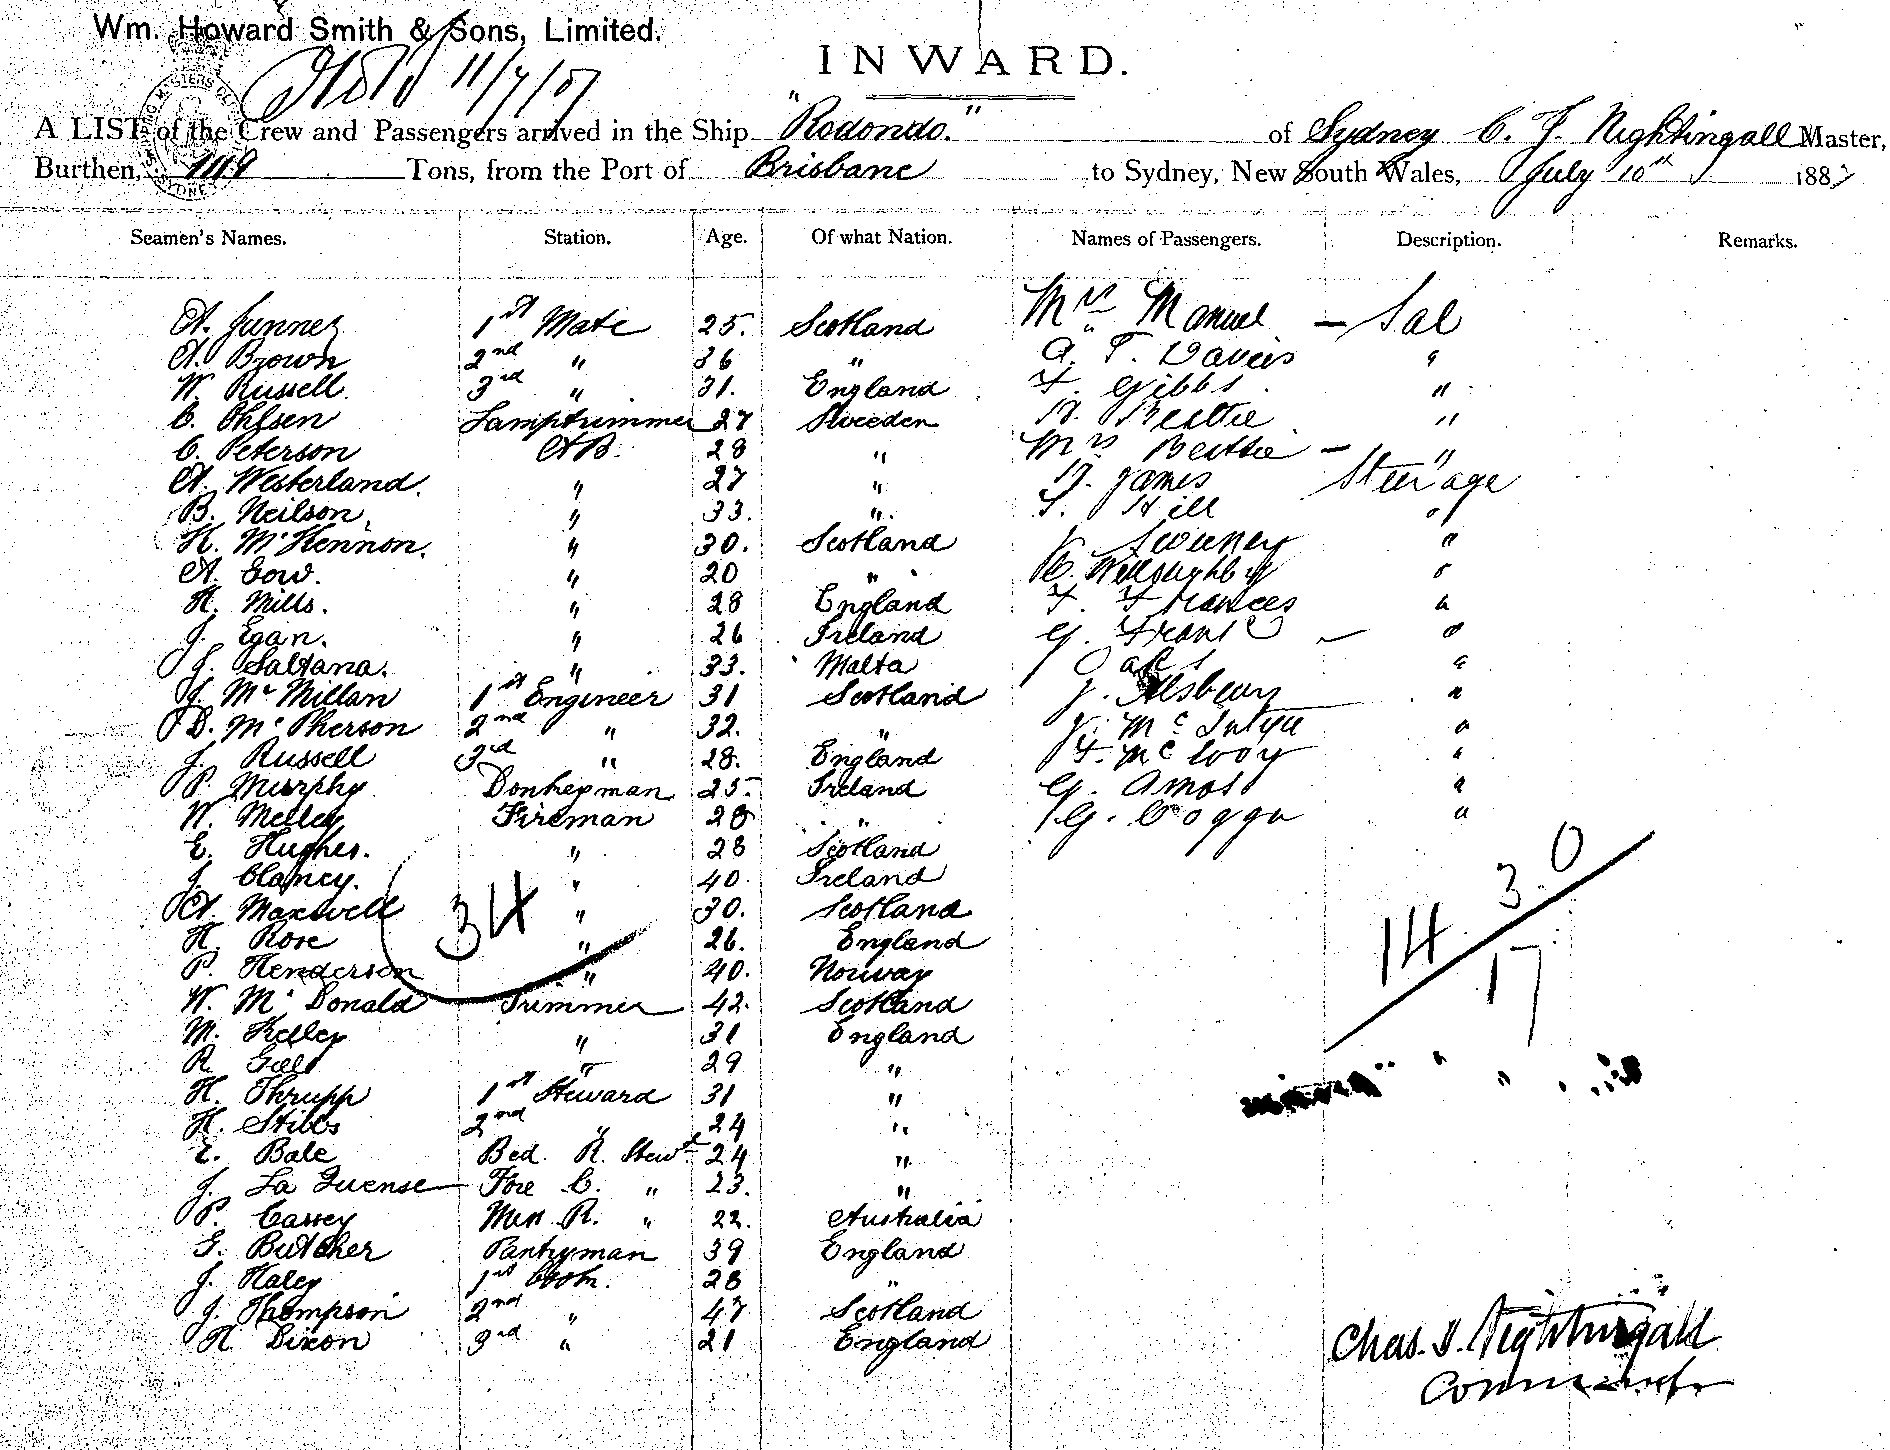 Wm. Howard Smith & Sons, Limited.
11/7/87
INWARD.
A LIST of the Crew and Passengers arrived in the Ship "Rodondo." of Sydney C. J. Nightingall Master,
Burthen, 1119 Tons, from the Port of Brisbane to Sydney, New South Wales, July 10th 1887
Seamen's Names. Station. Age. Of what Nation. Names of Passengers. Description. Remarks.
A. Junner 1st Mate 25. Scotland Mrs Manuel — Sal
A. Brown 2nd " 36 " A. T. Davies "
W. Russell 3rd " 31. England F. Gibbs "
C. Ohlsen Lamptrimmer 27 Sweden H. Beattie "
C. Peterson AB. 28 " Mrs Beattie — "
A. Westerland. " 27 " H. James Steerage
B. Neilson. " 33. " T. Hill "
H. McKennon. " 30. Scotland J. Sweeney "
A. Gow. " 20 " C. Willoughby "
H. Mills. " 28 England F. Frances "
J. Egan. " 26 Ireland G. Frank — "
J. Saltana. " 33. Malta Oaks "
J. McMillan 1st Engineer 31 Scotland J. "
D. McPherson 2nd " 32. " J. McIntyre "
J. Russell 3rd " 28. England F. McEvoy "
P. Murphy Donkeyman 25. Ireland G. Amos "
W. Melley Fireman 28 " G. "
E. Hughes. " 28 Scotland
J. Clancy. " 40. Ireland
A. Maxwell " 30. Scotland
H. Rose " 26. England
P. Henderson " 40. Norway
W. McDonald Trimmer 42. Scotland
M. Kelley " 31 England
R. " 29 "
H. Thrupp 1st Steward 31 "
H. Stibbs 2nd " 24 "
E. Bale Bed. R. Stewd 24 "
J. La Quense Fore C. " 23. "
P. Cassey Mess R. " 22. Australia
G. Butcher Pantryman 39 England
J. Haley 1st Cook. 28 "
J. Thompson 2nd " 47 Scotland
H. Dixon 3rd " 21 England
34
14 3.0
17
Chas. J. Nightingall
Commander